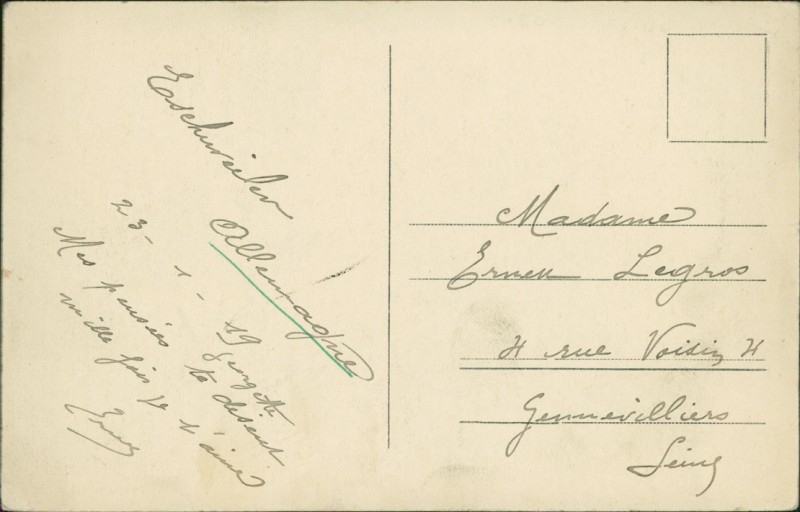 Eschweiler
Allemagne
23 - 1 - 19
Mes pensées te disent
mille fois je t'aime
Madame
Ernest Legros
4 rue Voisin 4
Gennevilliers
Seine